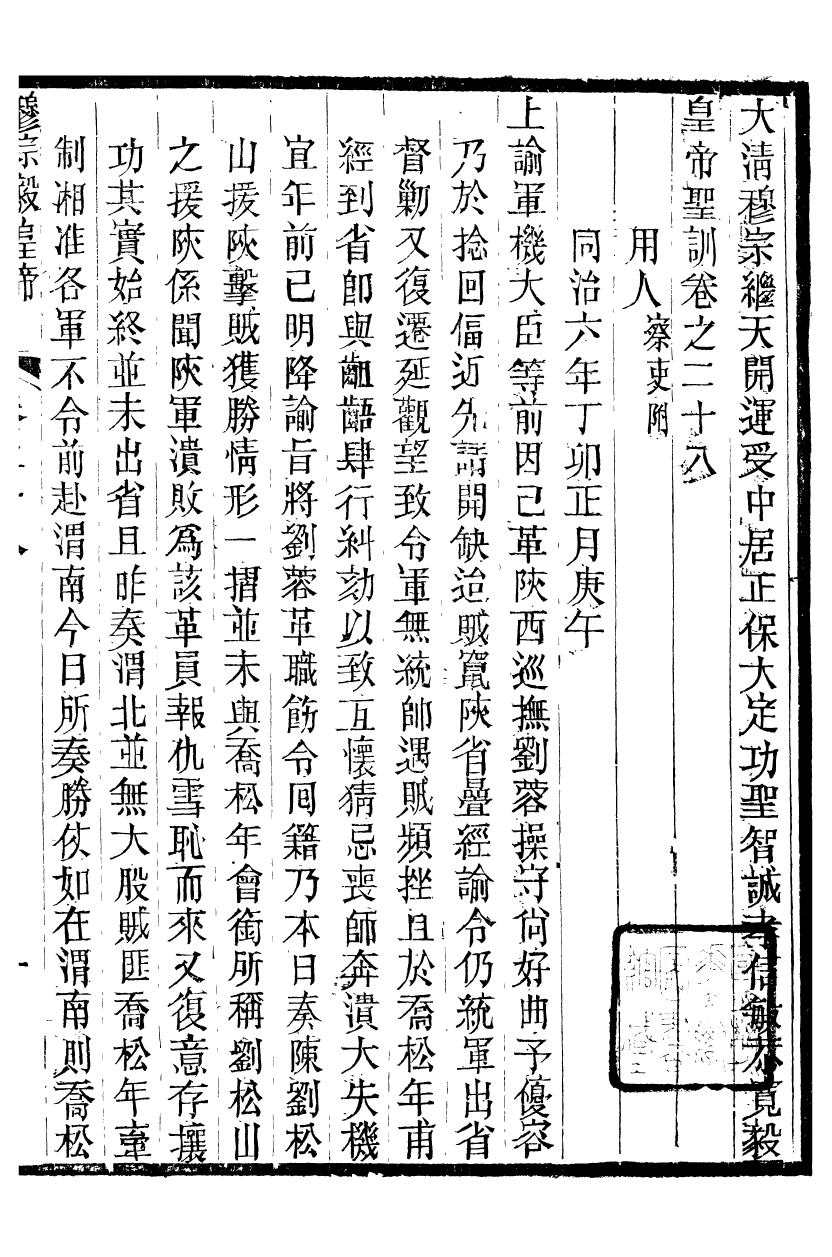 大清穆宗繼天開運受中居正保大定功聖智誠孝信敏恭寬毅
皇帝聖訓卷之二十八
用人察吏附
同治六年丁卯正月庚午
上諭軍機大臣等前因已革陝西巡撫劉蓉操守尙好曲予優容
乃於捻回偪近先請開缺迨賊竄陝省疊經諭令仍統軍出省
督勦又復遷延觀望致令軍無統帥遇賊頻挫且於喬松年甫
經到省卽與齟齬肆行糾劾以致互懷猜忌喪師奔潰大失機
宜年前已明降諭旨將劉蓉革職飭令囘籍乃本日奏陳劉松
山援陝擊賊獲勝情形一摺並未與喬松年會銜所稱劉松山
之援陝係聞陝軍潰敗爲該革員報仇雪恥而來又復意存攘
功其實始終並未出省且昨奏渭北並無大股賊匪喬松年牽
制湘淮各軍不令前赴渭南今日所奏勝仗如在渭南則喬松
穆宗毅皇帝